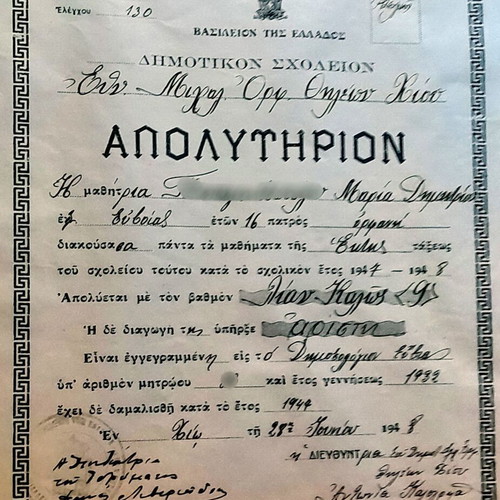 Ἐλέγχου 130
ΒΑΣΙΛΕΙΟΝ ΤΗΣ ΕΛΛΑΔΟΣ
ΔΗΜΟΤΙΚΟΝ ΣΧΟΛΕΙΟΝ
Ἐθν Μιχαλ Ὀρφ. Θηλέων Χίου
ΑΠΟΛΥΤΗΡΙΟΝ
Ἡ μαθήτρια Μαρία Δημητρίου
ἐξ Εὐβοίας ἐτῶν 16 πατρὸς ὀρφανή
διακούσασα πάντα τὰ μαθήματα τῆς Ἕκτης τάξεως
τοῦ σχολείου τούτου κατὰ τὸ σχολικὸν ἔτος 1947 — 1948
Ἀπολύεται μὲ τὸν βαθμὸν Λίαν Καλῶς <9>
Ἡ δὲ διαγωγή της ὑπῆρξε ἀρίστη
Εἶναι ἐγγεγραμμένη εἰς τὸ Δημοτολόγιον
ὑπ' ἀριθμὸν μητρῴου καὶ ἔτος γεννήσεως 1932
ἔχει δὲ δαμαλισθῆ κατὰ τὸ ἔτος 1944
Ἐν Χίῳ τῇ 28ῃ Ἰουνίου 1948
Ἡ Διευθύντρια
ἡ ΔΙΕΥΘΥΝΤρια
τοῦ
Θηλέων Χίου